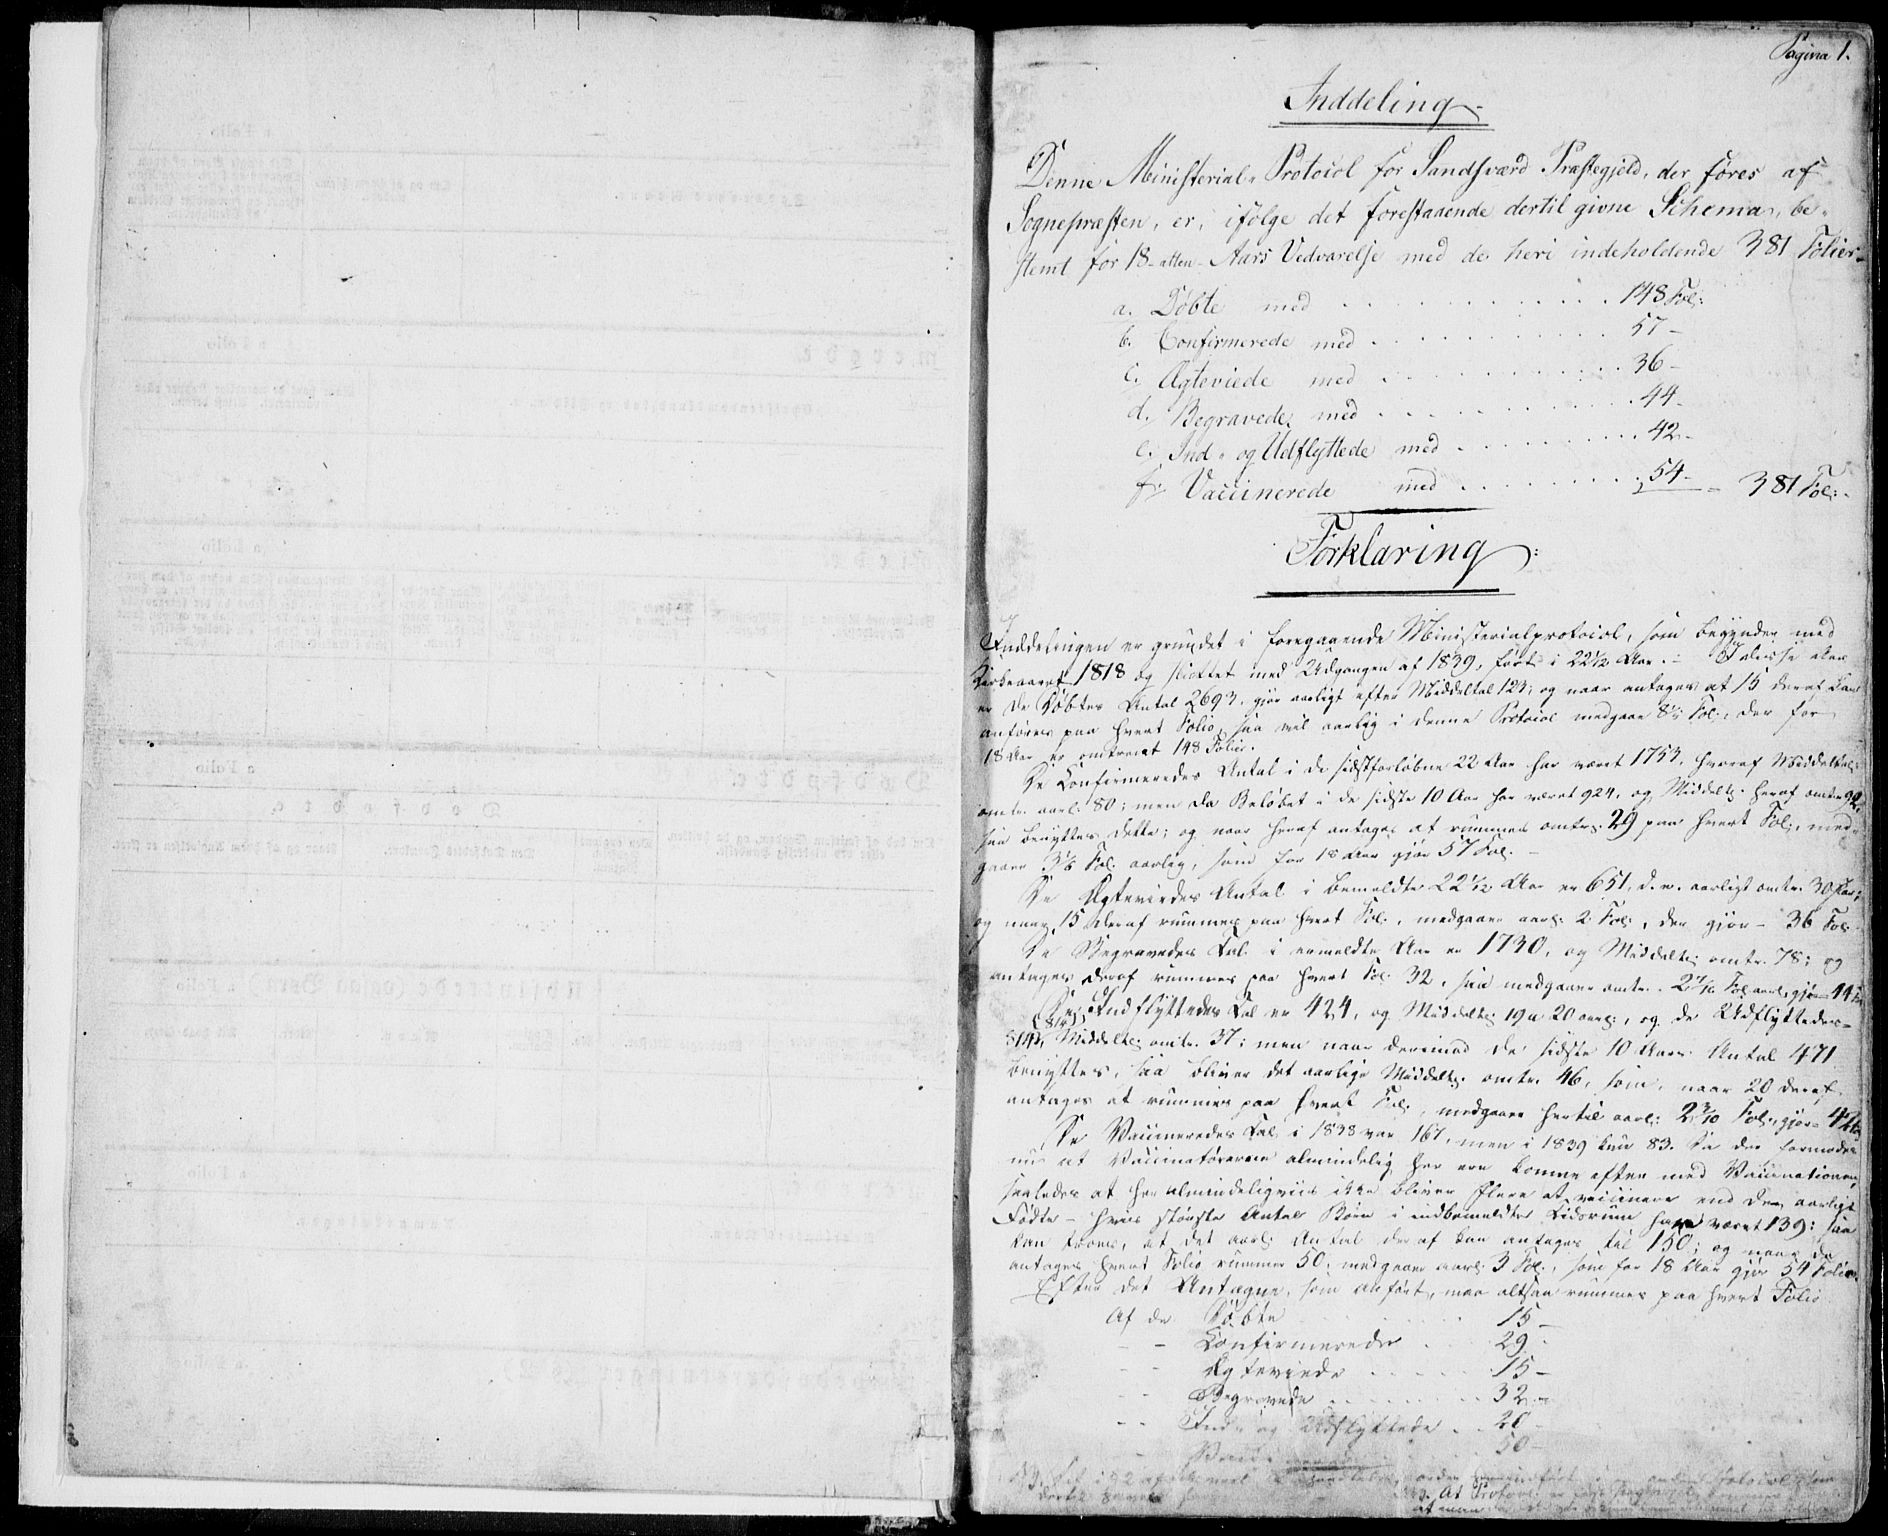 Pagina 1.
Inddeling
Denne Ministerial-Protocol for Sandsværd Præstegjeld, der føres af
Sognepræsten, er, ifølge det forestaaende dertil givne Schema, be-
stemt for 18-atten-Aars Vedvarelse med de heri indeholdende 381 Folier
a. Døbte med . . . 148 Fol:
b. Confirmerede med . . . 57 -
c. Ægteviede med . . . 36 -
d. Begravede med . . . 44 -
e. Ind- og Udflyttede med . . . 42 -
f. Vaccinerede med . . . 54 - = 381 Fol:
Forklaring
Inddelingen er grundet i foregaaende Ministerialprotocol, som begynder med
Kirkeaaret 1818 og sluttet med Udgangen af 1839,ført i 22 1/12 Aar. - I disse Aar
er de Døbtes Antal 2693, gjør aarligt efter Middeltal 123; og naar antages at 15 deraf kan
anføres paa hvert Folio, saa vil aarlig i denne Protocol medgaae 8 1/5 Fol:, der for
18 Aar er omtrent 148 Folier.
De Confirmeredes Antal i de sidstforløbne 22 Aar har været 1753, hvoraf Middeltal
omtr. aarl: 80; men da Beløbet i de sidste 10 Aar har været 924, og Middelt: heraf omtr. 92,
saa benyttes dette; og naar heraf antages at rummes omtr. 29 paa hvert Fol:, med-
gaaer 3 1/6 Fol: aarlig, som for 18 Aar gjør 57 Fol: -
De Ægteviedes Antal i bemeldte 22 1/12 Aar er 651, d. e. aarligt omtr. 30 Par;
og naar 15 deraf rummes paa hvert Fol:, medgaaer aarl: 2 Fol:, der gjør - 36 Fol:
De Begravedes Tal i ermeldte Aar er 1730, og Middelt: omtr. 78; og
antages deraf rummes paa hvert Fol: 32, saa medgaaer omtr. 2 4/10 Fol: aarl:, gjør 44
De Indflyttedes Tal er 424, og Middelt: 19 a 20 aarl:, og de Udflyttedes
814, Middelt: omtr. 37; men naar derimod de sidste 10 Aars Antal 471
benyttes, saa bliver det aarlige Middelt: omtr. 46, som, naar 20 deraf
antages at rummes paa hvert Fol:, medgaaer hertil aarl: 2 3/10 Fol:, gjør 42
De Vaccineredes Tal i 1838 var 167, men i 1839 kun 83. Da der formodes
nu at Vaccinatørerne almindelig her ere komne efter med Vaccinationen,
saaledes at her almindeligviis ikke bliver flere at vaccinere end de aarligt
Fødte - hvis største Antal Børn i indbemeldte Tidsrum har været 139; saa
kan troes, at det aarl: Antal deraf kan antages til 150; og naar da
antages hvert Folio rummer 50, medgaaer aarl: 3 Fol:, som for 18 Aar gjør 54 Folier.
Efter det Antagne, som anført, maa altsaa rummes paa hvert Folio
Af de Døbte . . . 15 -
- - Confirmerede . . . 29 -
- - Ægteviede . . . 15 -
- - Begravede . . . 32 -
- - Ind- og Udflyttede . . 20 -
50 -